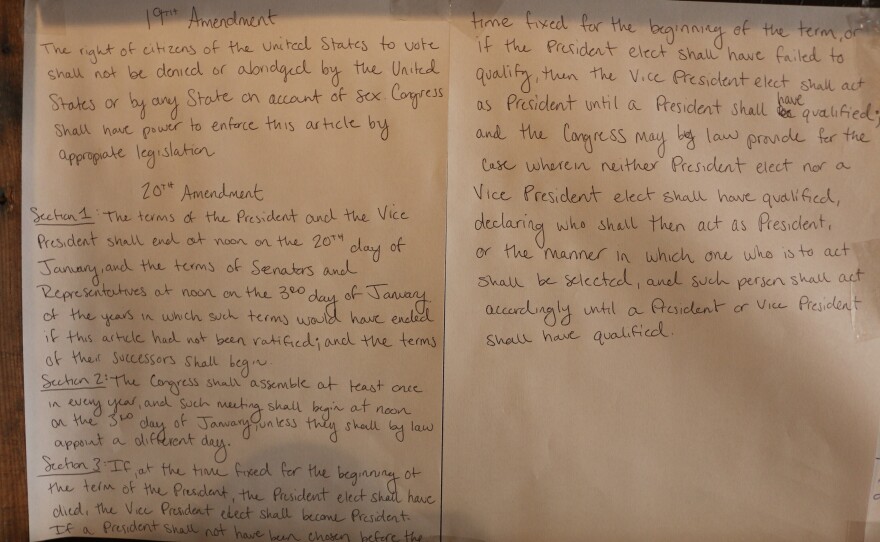 19TH Amendment
The right of citizens of the United States to vote
shall not be denied or abridged by the United
States or by any State on account of sex. Congress
shall have power to enforce this article by
appropiate legislation
20TH Amendment
Section 1: The terms of the President and the Vice
President shall end at noon on the 20TH day of
January, and the terms of Senators and
Representatives at noon on the 3RD day of January
of the years in which such terms would have ended
if this article had not been ratified; and the terms
of their successors shall begin.
Section 2: The Congress shall assemble at least once
in every year, and such meeting shall begin at noon
on the 3RD day of January, unless they shall by law
appoint a different day.
Section 3: If, at the time fixed for the beginning of
the term of the President, the President elect shall have
died, the Vice President elect shall become President.
If a President shall not have been chosen before the
time fixed for the beginning of the term, or
if the President elect shall have failed to
qualify, then the Vice President elect shall act
as President until a President shall have qualified;
and the Congress may by law provide for the
case wherein neither President elect nor a
Vice President elect shall have qualified,
declaring who shall then act as President,
or the manner in which one who is to act
shall be selected, and such person shall act
accordingly until a President or Vice President
shall have qualified.